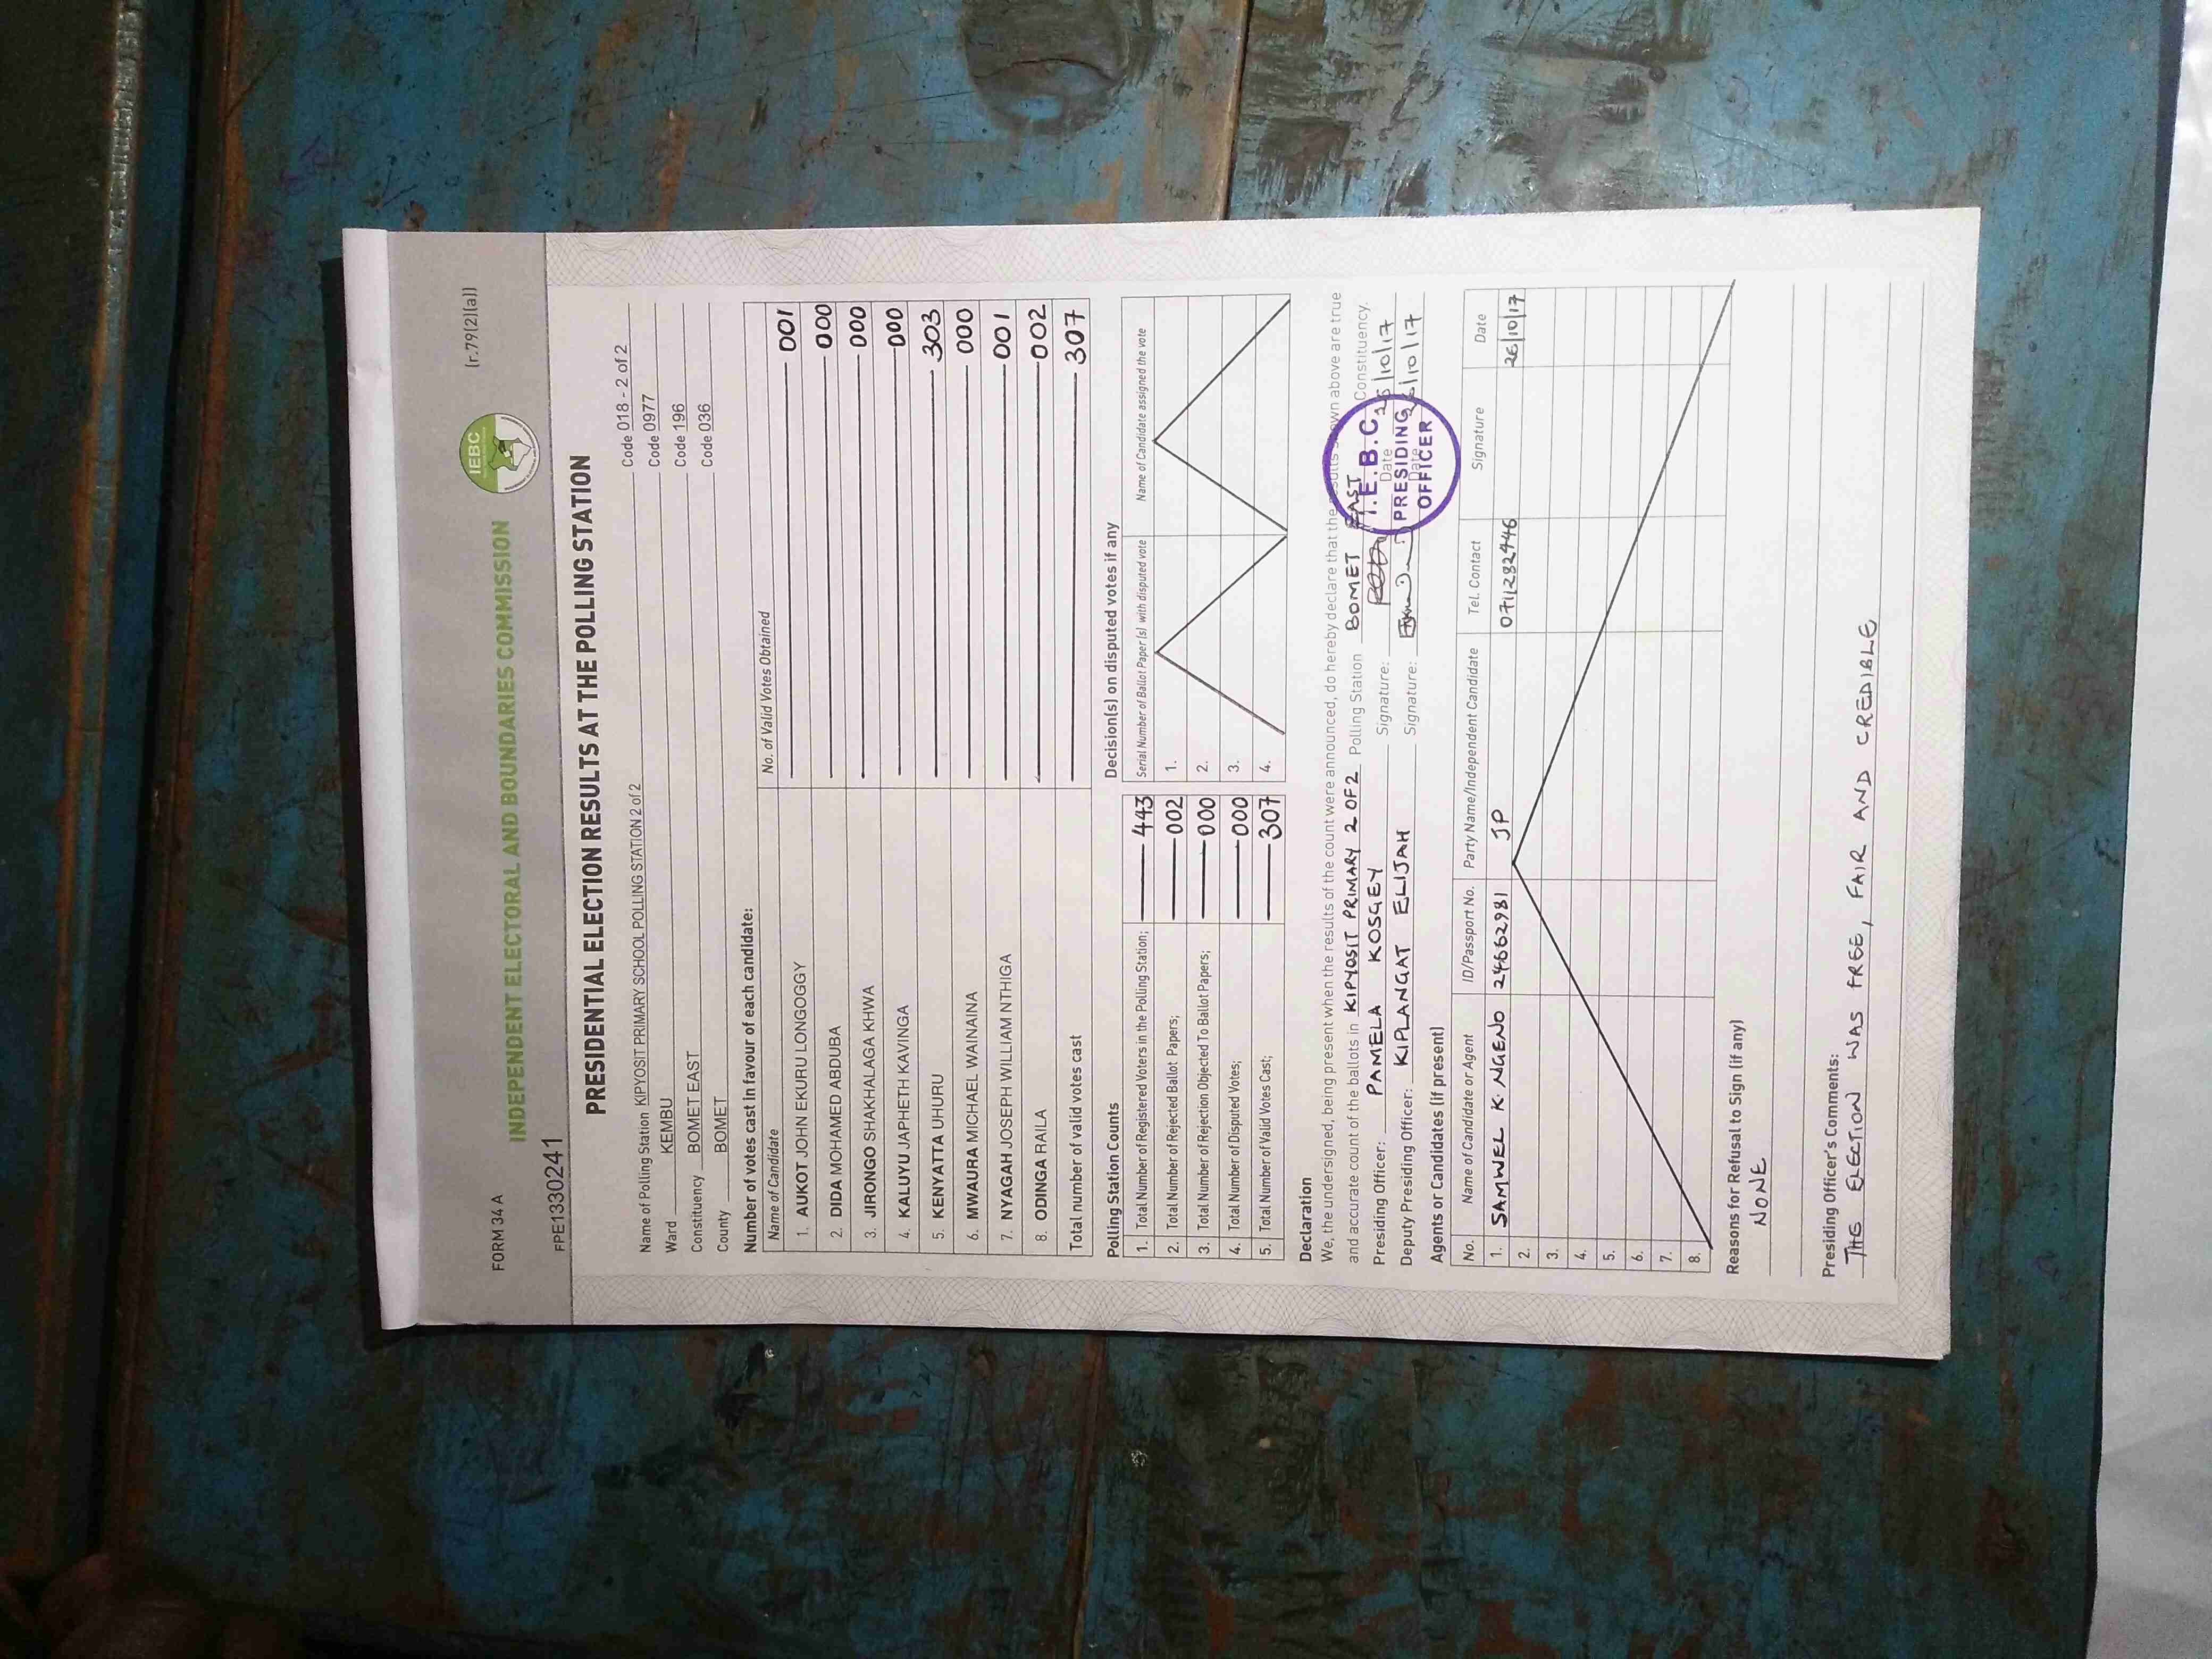 FORM 34 A
[r.79(2)(a)]
IEBC
INDEPENDENT ELECTORAL AND BOUNDARIES COMMISSION
FPE1330241
PRESIDENTIAL ELECTION RESULTS AT THE POLLING STATION
Name of Polling Station KIPYOSIT PRIMARY SCHOOL POLLING STATION 2 of 2 Code 018 - 2 of 2
Ward KEMBU Code 0977
Constituency BOMET EAST Code 196
County BOMET Code 036
Number of votes cast in favour of each candidate:
Name of Candidate No. of Valid Votes Obtained
1. AUKOT JOHN EKURU LONGOGGY 001
2. DIDA MOHAMED ABDUBA 000
3. JIRONGO SHAKHALAGA KHWA 000
4. KALUYU JAPHETH KAVINGA 000
5. KENYATTA UHURU 303
6. MWAURA MICHAEL WAINAINA 000
7. NYAGAH JOSEPH WILLIAM NTHIGA 001
8. ODINGA RAILA 002
Total number of valid votes cast 307
Polling Station Counts
1. Total Number of Registered Voters in the Polling Station; 443
2. Total Number of Rejected Ballot Papers; 002
3. Total Number of Rejection Objected To Ballot Papers; 000
4. Total Number of Disputed Votes; 000
5. Total Number of Valid Votes Cast; 307
Decision(s) on disputed votes if any
Serial Number of Ballot Paper (s) with disputed vote Name of Candidate assigned the vote
1.
2.
3.
4.
Declaration
We, the undersigned, being present when the results of the count were announced, do hereby declare that the results shown above are true
and accurate count of the ballots in KIPYOSIT PRIMARY 2 OF 2 Polling Station BOMET EAST Constituency.
Presiding Officer: PAMELA KOSGEY Signature: Date 26/10/17
Deputy Presiding Officer: KIPLANGAT ELIJAH Signature: Date 26/10/17
I.E.B.C.
PRESIDING
OFFICER
Agents or Candidates (if present)
No. Name of Candidate or Agent ID/Passport No. Party Name/Independent Candidate Tel. Contact Signature Date
1. SAMWEL K. NGENO 24662981 JP 0711282446 26/10/17
2.
3.
4.
5.
6.
7.
8.
Reasons for Refusal to Sign (if any)
NONE
Presiding Officer's Comments:
THE ELECTION WAS FREE, FAIR AND CREDIBLE